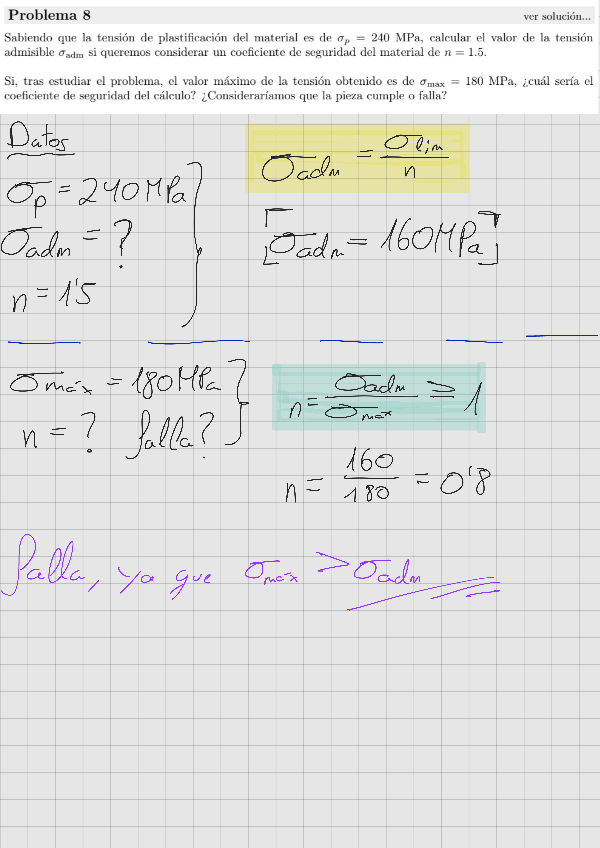 Problema 8 ver solución...
Sabiendo que la tensión de plastificación del material es de σp = 240 MPa, calcular el valor de la tensión
admisible σadm si queremos considerar un coeficiente de seguridad del material de n = 1.5.
Si, tras estudiar el problema, el valor máximo de la tensión obtenido es de σmax = 180 MPa, ¿cuál sería el
coeficiente de seguridad del cálculo? ¿Consideraríamos que la pieza cumple o falla?
Datos
σp = 240 MPa
σadm = ?
n = 1'5
σadm = σlim / n
[σadm = 160 MPa]
σmáx = 180 MPa
n = ? falla?
n = σadm / σmáx ≥ 1
n = 160 / 180 = 0'8
falla, ya que σmáx > σadm